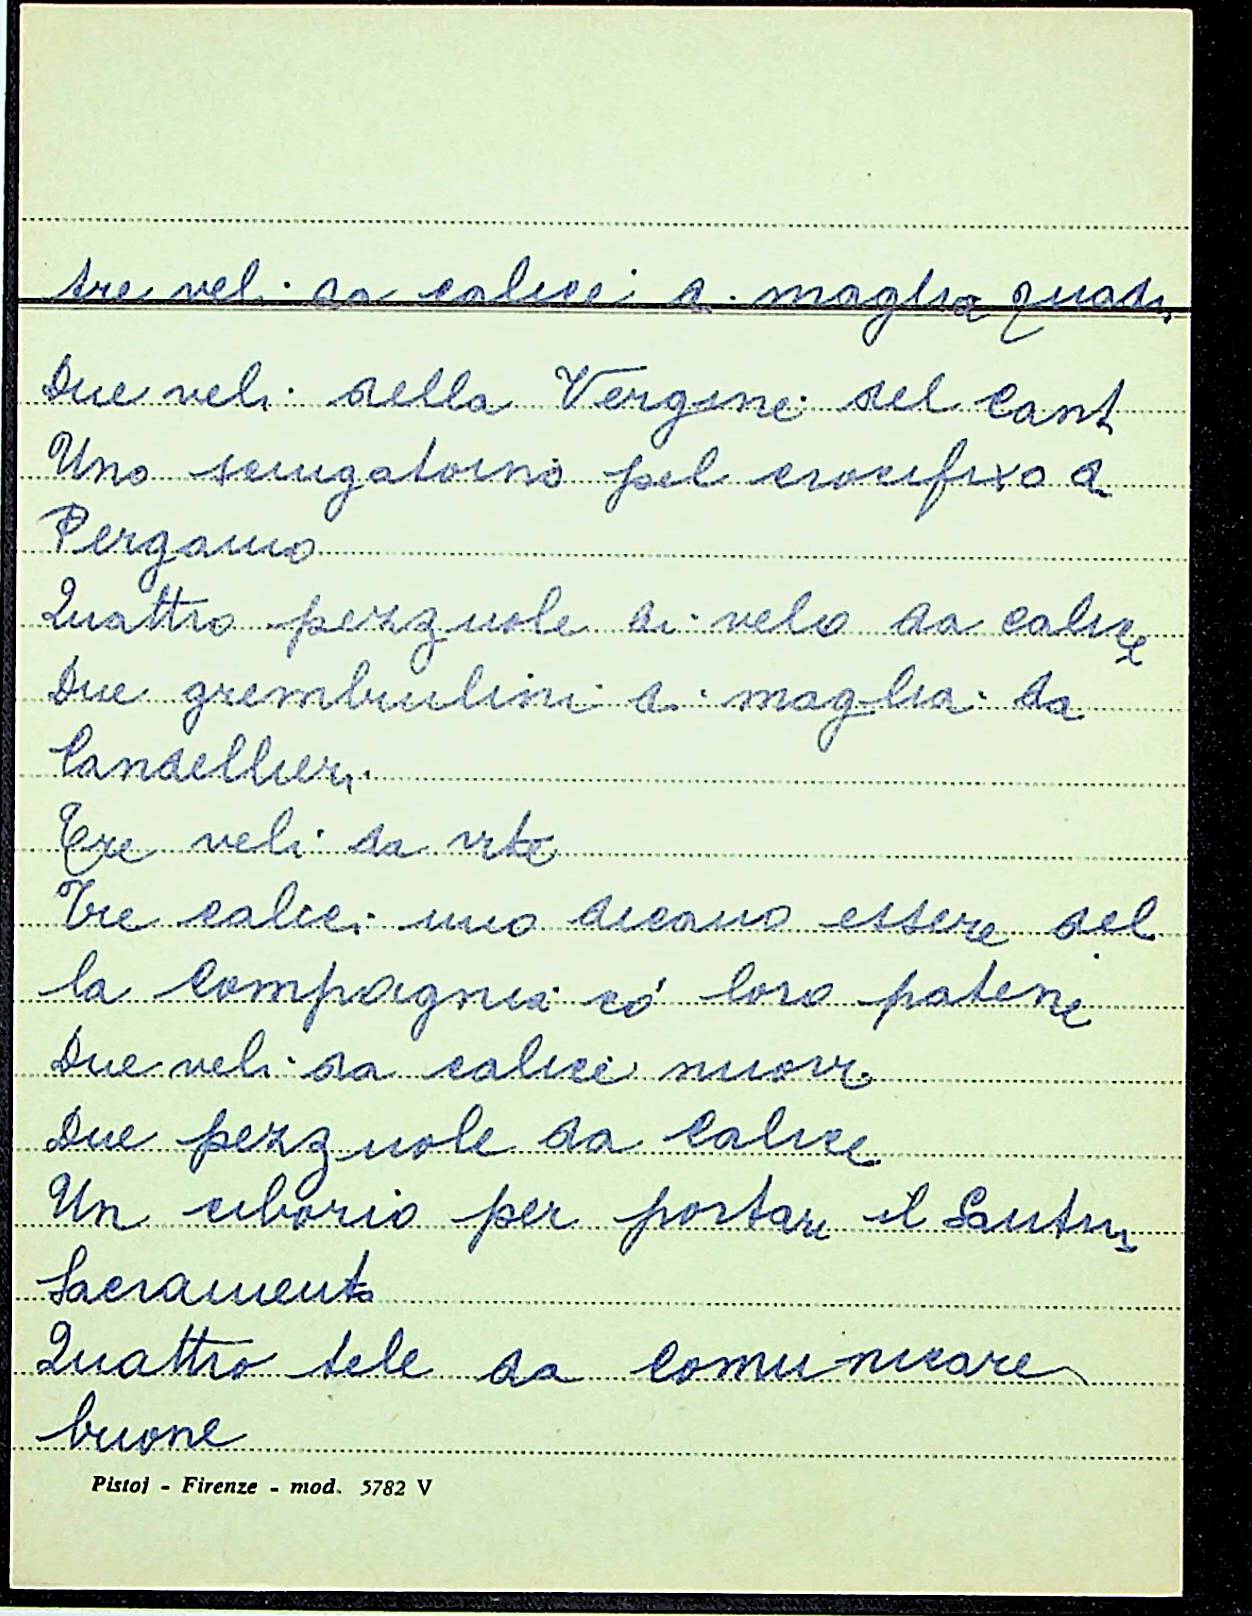 tre veli da calici di maglia quadr.
Due veli della Vergine del Cant
Uno sciugatoino pel crocifixo di
Pergamo
Quattro pezzuole di velo da calice
Due grembiulini di maglia da
Candellieri
Tre veli da vite
Tre calici uno dicano essere del
la Compagnia có loro patene
Due veli da calice nuovi
Due pezzuole da Calice
Un ciborio per portare il Santis
Sacramento
Quattro tele da Comunicare
buone
Pistoj - Firenze - mod. 5782 V